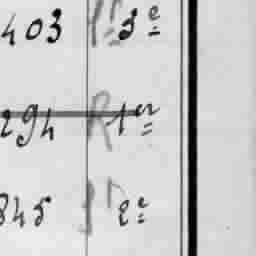 403 3e
294 R 1er
845 2e